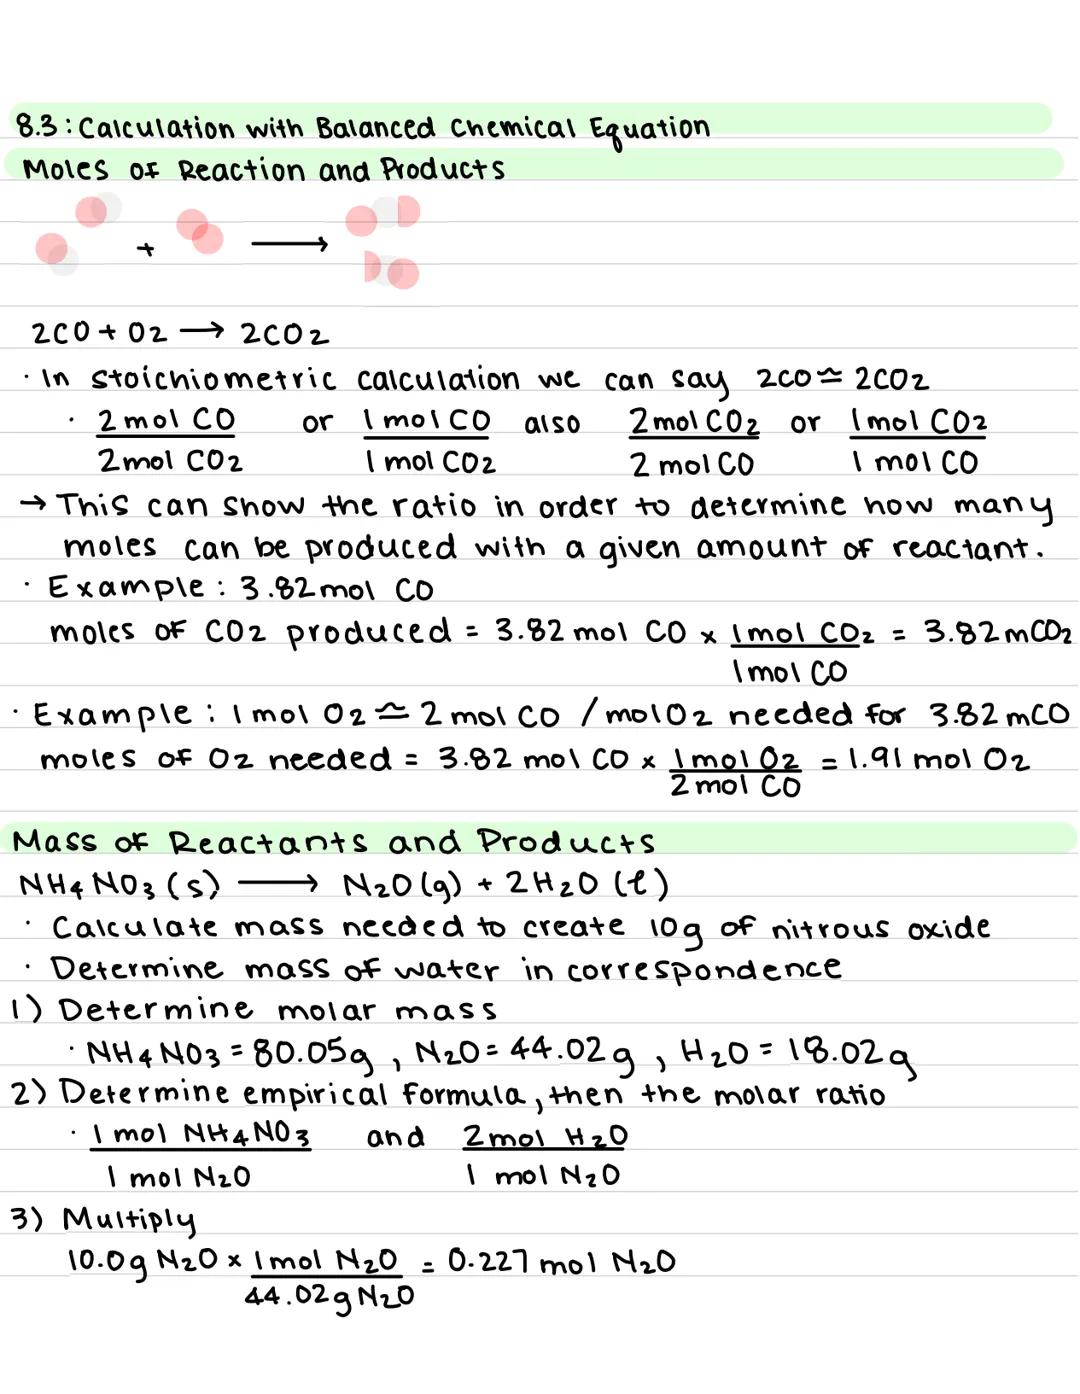 8.3: Calculation with Balanced Chemical Equation
Moles of Reaction and Products
+ ⟶
2CO + O2 ⟶ 2CO2
· In stoichiometric calculation we can say 2CO ≃ 2CO2
· 2 mol CO or 1 mol CO also 2 mol CO2 or 1 mol CO2
2 mol CO2 1 mol CO2 2 mol CO 1 mol CO
→ This can show the ratio in order to determine how many
moles can be produced with a given amount of reactant.
· Example: 3.82 mol CO
moles of CO2 produced = 3.82 mol CO x 1 mol CO2 = 3.82 mCO2
1 mol CO
· Example: 1 mol O2 ≃ 2 mol CO / mol O2 needed for 3.82 mCO
moles of O2 needed = 3.82 mol CO x 1 mol O2 = 1.91 mol O2
2 mol CO
Mass of Reactants and Products
NH4NO3 (s) ⟶ N2O (g) + 2H2O (ℓ)
· Calculate mass needed to create 10g of nitrous oxide
· Determine mass of water in correspondence
1) Determine molar mass
· NH4NO3 = 80.05g, N2O = 44.02g, H2O = 18.02g
2) Determine empirical formula, then the molar ratio
· 1 mol NH4NO3 and 2 mol H2O
1 mol N2O 1 mol N2O
3) Multiply
10.0g N2O x 1 mol N2O = 0.227 mol N2O
44.02g N2O